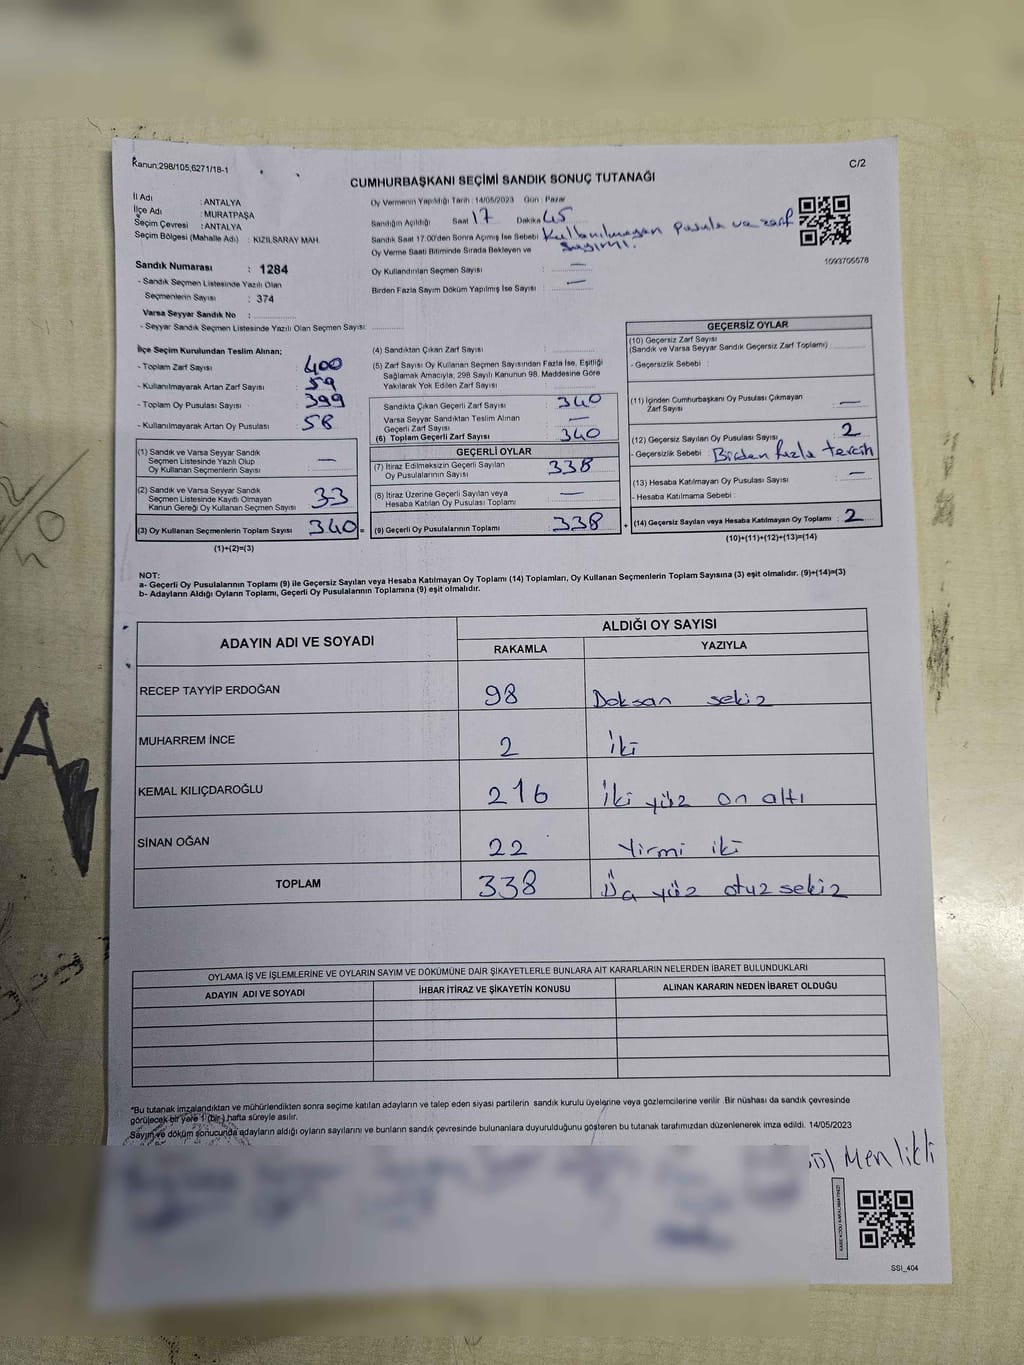 Kanun;298/105,6271/18-1
C/2
CUMHURBAŞKANI SEÇİMİ SANDIK SONUÇ TUTANAĞI
İl Adı : ANTALYA
İlçe Adı : MURATPAŞA
Seçim Çevresi : ANTALYA
Seçim Bölgesi (Mahalle Adı) : KIZILSARAY MAH.
Sandık Numarası : 1284
- Sandık Seçmen Listesinde Yazılı Olan
Seçmenlerin Sayısı : 374
Varsa Seyyar Sandık No :
- Seyyar Sandık Seçmen Listesinde Yazılı Olan Seçmen Sayısı:
Oy Vermenin Yapıldığı Tarih : 14/05/2023 Gün : Pazar
Sandığın Açıldığı Saat 17 Dakika 45
Sandık Saat 17.00'den Sonra Açımış İse Sebebi Kullanılmayan pusula ve zarf
sayımı.
Oy Verme Saati Bitiminde Sırada Bekleyen ve
Oy Kullandırılan Seçmen Sayısı : —
Birden Fazla Sayım Döküm Yapılmış İse Sayısı : —
1093705578
İlçe Seçim Kurulundan Teslim Alınan;
- Toplam Zarf Sayısı : 400
- Kullanılmayarak Artan Zarf Sayısı : 59
- Toplam Oy Pusulası Sayısı : 399
- Kullanılmayarak Artan Oy Pusulası : 58
(1) Sandık ve Varsa Seyyar Sandık
Seçmen Listesinde Yazılı Olup
Oy Kullanan Seçmenlerin Sayısı : —
(2) Sandık ve Varsa Seyyar Sandık
Seçmen Listesinde Kaydı Olmayan
Kanun Gereği Oy Kullanan Seçmen Sayısı : 33
(3) Oy Kullanan Seçmenlerin Toplam Sayısı : 340 =
(1)+(2)=(3)
(4) Sandıktan Çıkan Zarf Sayısı :
(5) Zarf Sayısı Oy Kullanan Seçmen Sayısından Fazla İse, Eşitliği
Sağlamak Amacıyla, 298 Sayılı Kanunun 98. Maddesine Göre
Yakılarak Yok Edilen Zarf Sayısı :
Sandıkta Çıkan Geçerli Zarf Sayısı : 340
Varsa Seyyar Sandıktan Teslim Alınan
Geçerli Zarf Sayısı : —
(6) Toplam Geçerli Zarf Sayısı : 340
GEÇERLİ OYLAR
(7) İtiraz Edilmeksizin Geçerli Sayılan
Oy Pusulalarının Sayısı : 338
(8) İtiraz Üzerine Geçerli Sayılan veya
Hesaba Katılan Oy Pusulası Toplamı : —
(9) Geçerli Oy Pusulalarının Toplamı : 338 +
GEÇERSİZ OYLAR
(10) Geçersiz Zarf Sayısı
(Sandık ve Varsa Seyyar Sandık Geçersiz Zarf Toplamı) :
- Geçersizlik Sebebi :
(11) İçinden Cumhurbaşkanı Oy Pusulası Çıkmayan
Zarf Sayısı : —
(12) Geçersiz Sayılan Oy Pusulası Sayısı : 2
- Geçersizlik Sebebi : Birden fazla tercih
(13) Hesaba Katılmayan Oy Pusulası Sayısı : —
- Hesaba Katılmama Sebebi :
(14) Geçersiz Sayılan veya Hesaba Katılmayan Oy Toplamı : 2
(10)+(11)+(12)+(13)=(14)
NOT:
a- Geçerli Oy Pusulalarının Toplamı (9) ile Geçersiz Sayılan veya Hesaba Katılmayan Oy Toplamı (14) Toplamları, Oy Kullanan Seçmenlerin Toplam Sayısına (3) eşit olmalıdır. (9)+(14)=(3)
b- Adayların Aldığı Oyların Toplamı, Geçerli Oy Pusulalarının Toplamına (9) eşit olmalıdır.
ADAYIN ADI VE SOYADI ALDIĞI OY SAYISI
RAKAMLA YAZIYLA
RECEP TAYYİP ERDOĞAN 98 Doksan sekiz
MUHARREM İNCE 2 iki
KEMAL KILIÇDAROĞLU 216 iki yüz on altı
SİNAN OĞAN 22 Yirmi iki
TOPLAM 338 yüz otuz sekiz
OYLAMA İŞ VE İŞLEMLERİNE VE OYLARIN SAYIM VE DÖKÜMÜNE DAİR ŞİKAYETLERLE BUNLARA AİT KARARLARIN NELERDEN İBARET BULUNDUKLARI
ADAYIN ADI VE SOYADI İHBAR İTİRAZ VE ŞİKAYETİN KONUSU ALINAN KARARIN NEDEN İBARET OLDUĞU
*Bu tutanak imzalandıktan ve mühürlendikten sonra seçime katılan adayların ve talep eden siyasi partilerin sandık kurulu üyelerine veya gözlemcilerine verilir .Bir nüshası da sandık çevresinde
görülecek bir yere 1 (bir ) hafta süreyle asılır.
Sayım ve döküm sonucunda adayların aldığı oyların sayılarını ve bunların sandık çevresinde bulunanlara duyurulduğunu gösteren bu tutanak tarafımızdan düzenlenerek imza edildi. 14/05/2023
Menlikli
SSI_404
A